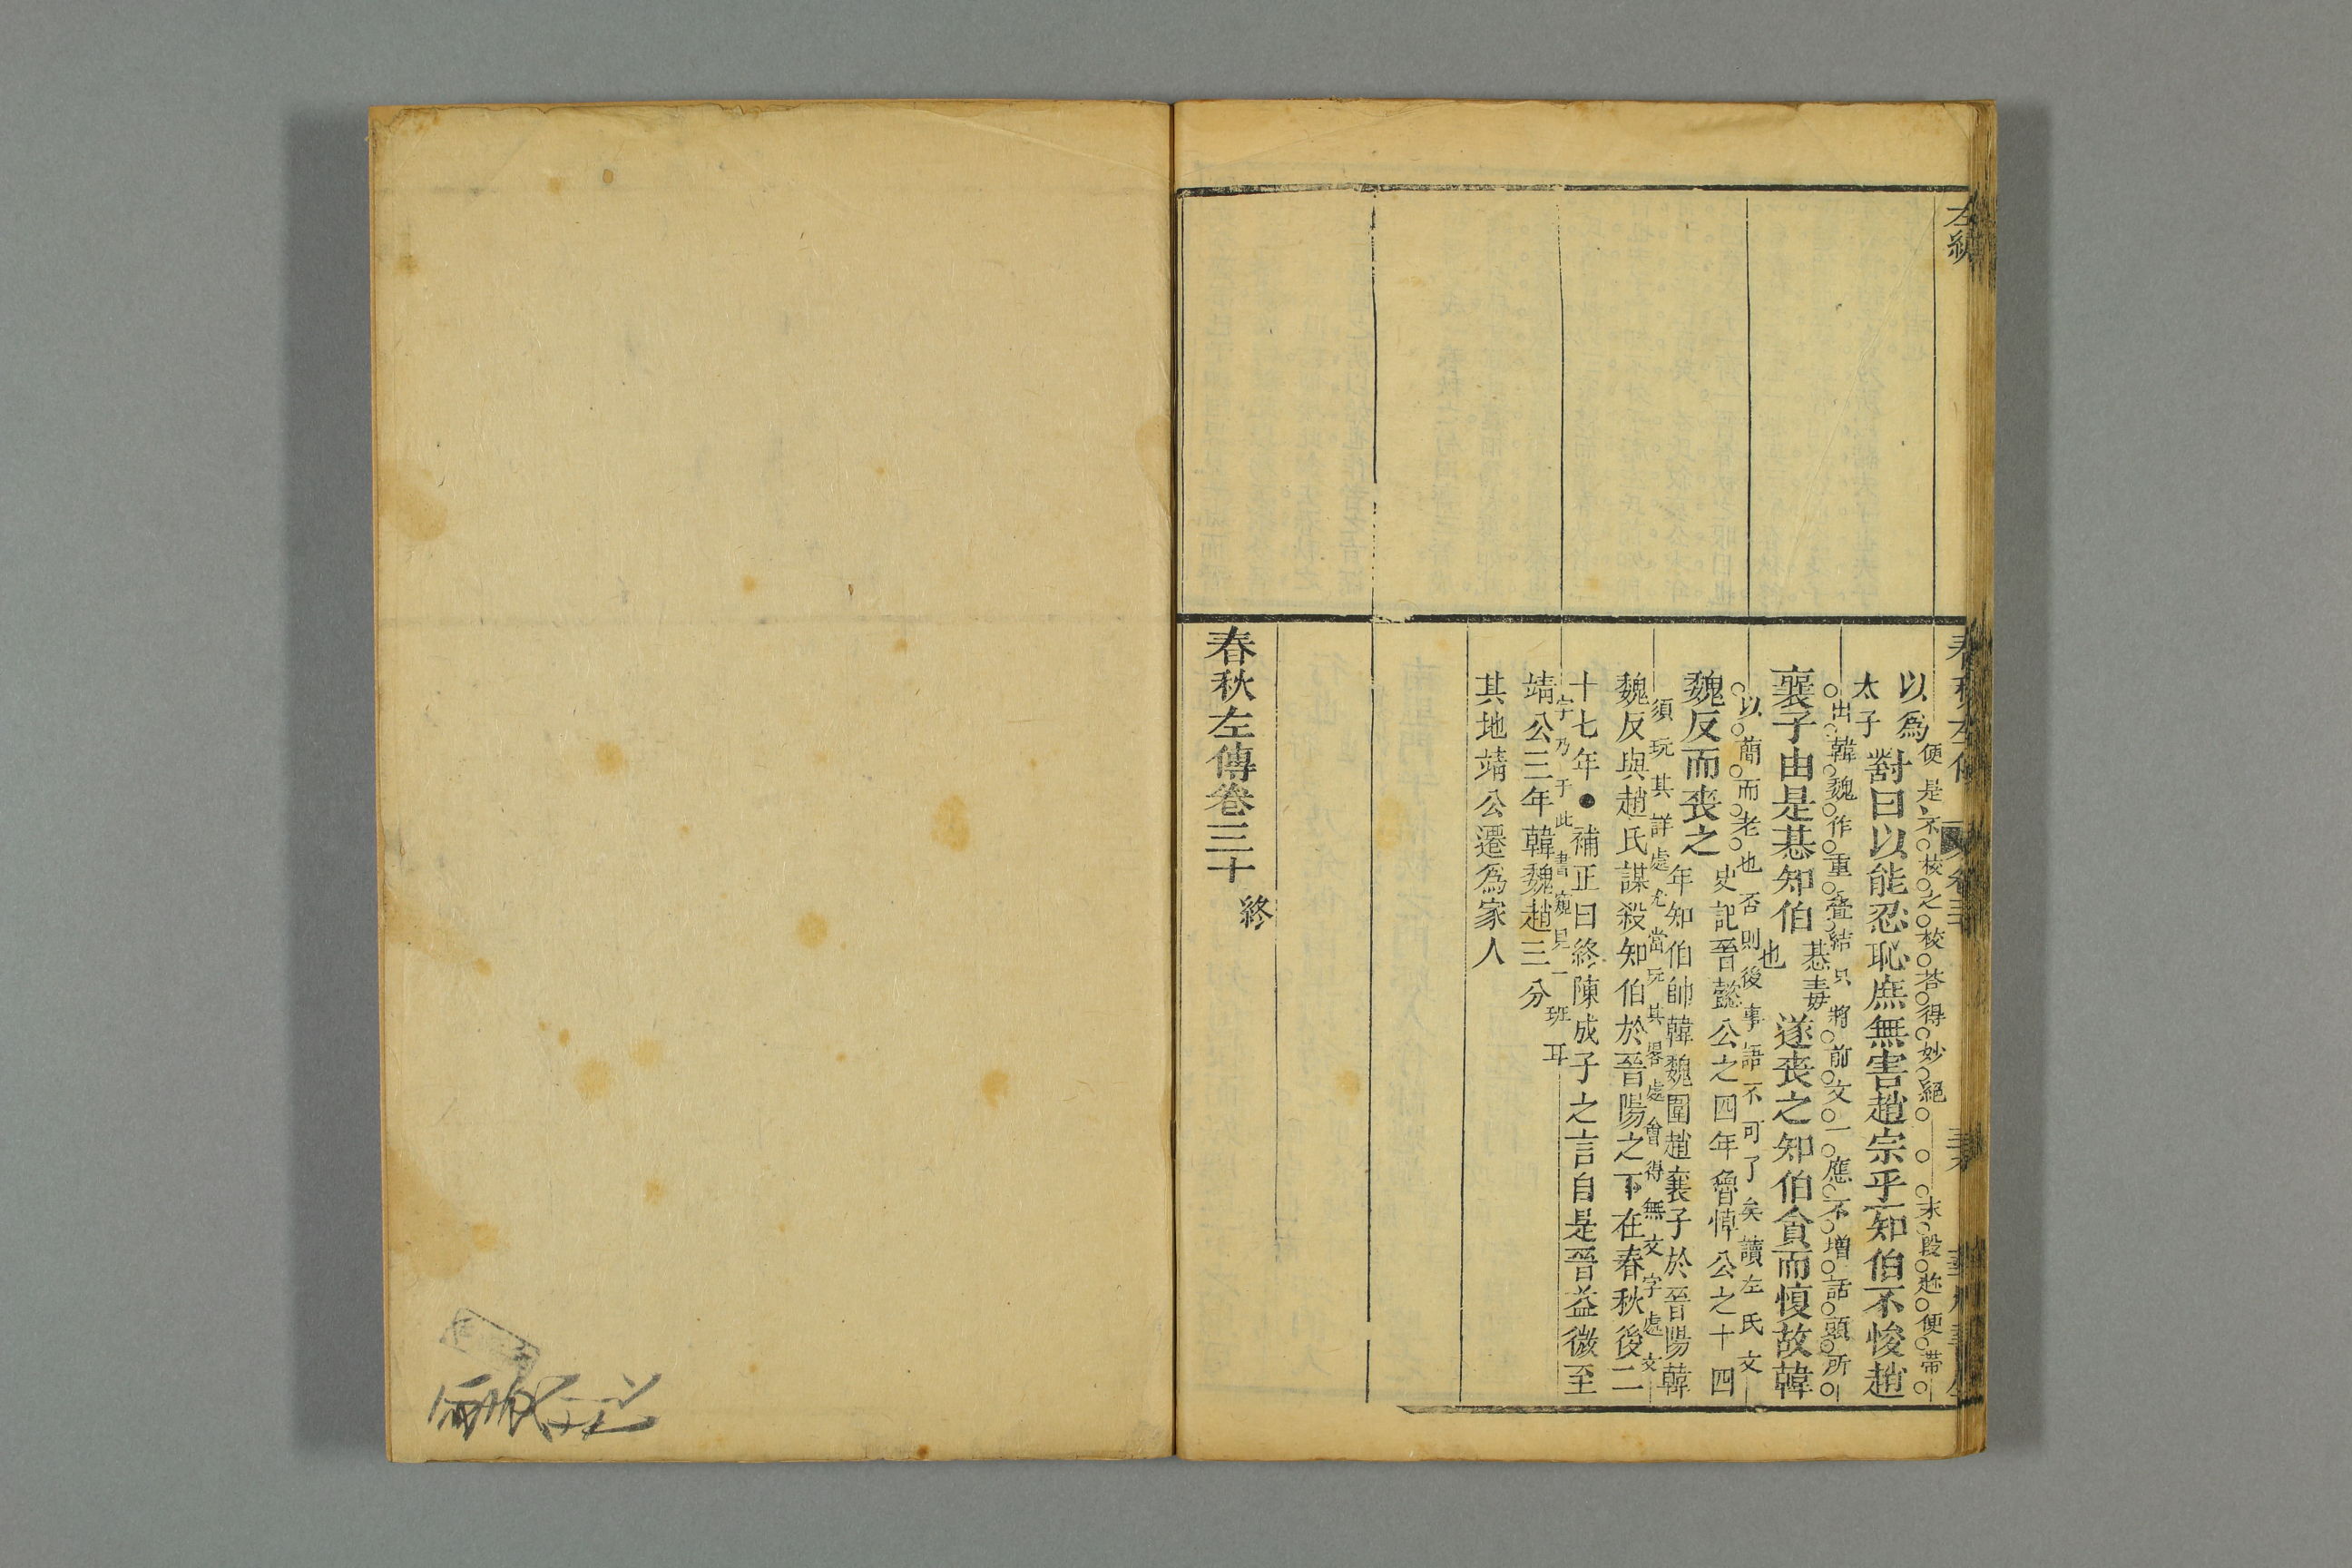 左繡
以為
太子
對曰以能忍恥庶無害趙宗乎知伯不悛趙
便是不校之校答得妙絕 末段趂便帶
出韓魏作重疊結只將前文一應不增話頭所
襄子由是惎知伯
惎毒
也
遂喪之知伯貪而愎故韓
以簡而老也否則後事語不可了矣讀左氏文
魏反而喪之
史記晉懿公之四年魯悼公之十四
年知伯帥韓魏圍趙襄子於晉陽韓
須玩其詳處尤當玩其畧處會得無文字處文
魏反與趙氏謀殺知伯於晉陽之下在春秋後二
十七年●補正曰終陳成子之言自是晉益微至
字乃于此書窺見一班耳
靖公三年韓魏趙三分
其地靖公遷為家人
春秋左傳卷三十
終